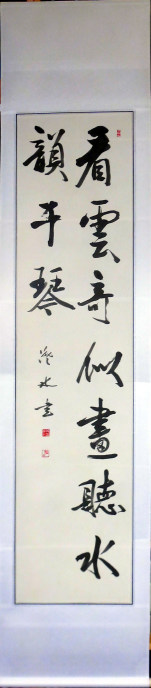 看雲奇似畫聽水
韻平琴